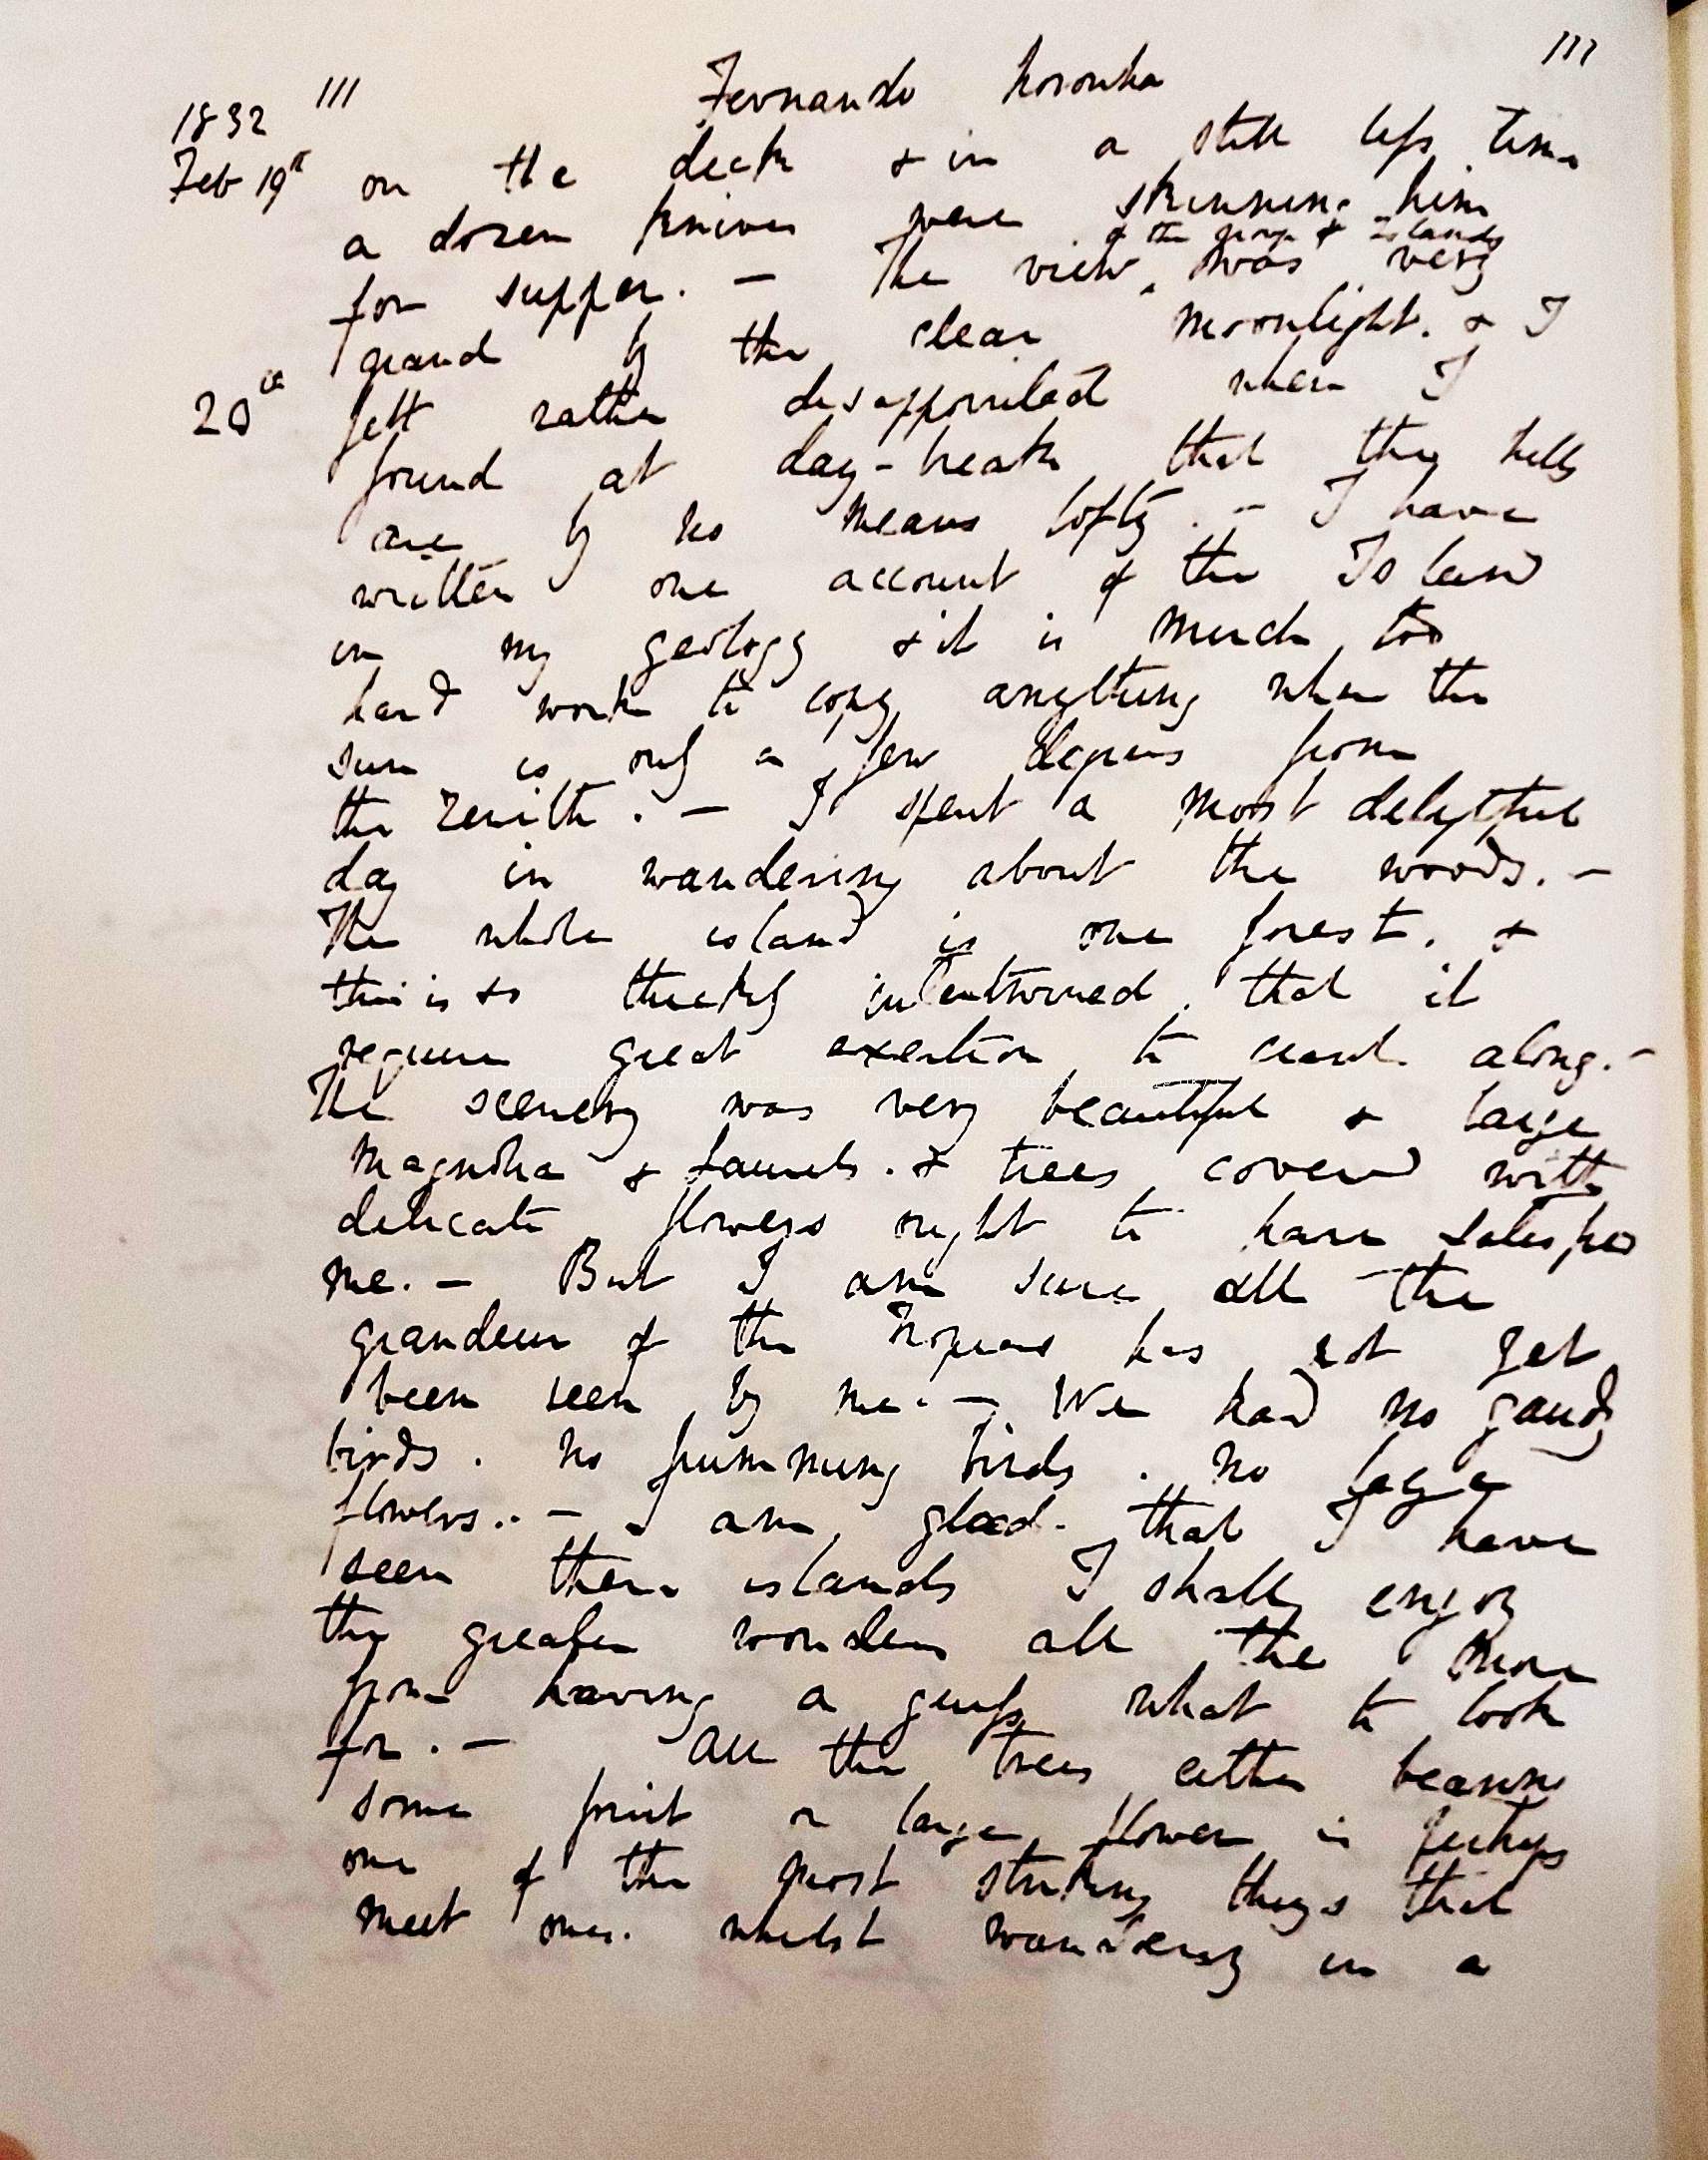 111 Fernando Noronha 111
1832
Feb 19th on the deck & in a still less time
a dozen knives were skinning him
of the group of Islands
for supper. — The view was very
grand by the clear moonlight. & I
20th felt rather disappointed when I
found at day-break that the hills
are by no means lofty. — I have
written one account of the Island
in my geology & it is much too
hard work to copy anything when the
sun is only a few degrees from
the Zenith. — I spent a most delightful
day in wandering about the woods. —
The whole island is one forest, &
this is so thickly intertwined that it
requires great exertion to crawl along. —
The scenery was very beautiful & large
Magnolia & Laurels & trees covered with
delicate flowers ought to have satisfied
me. — But I am sure all the
grandeur of the Tropics has not yet
been seen by me. — We had no gaudy
birds. No humming birds. No large
flowers. — I am glad that I have
seen these islands I shall enjoy
the greater wonders all the more
from having a guess what to look
for. — All the trees either bearing
some fruit or large flower is perhaps
one of the most striking things that
meet one whilst wandering in a